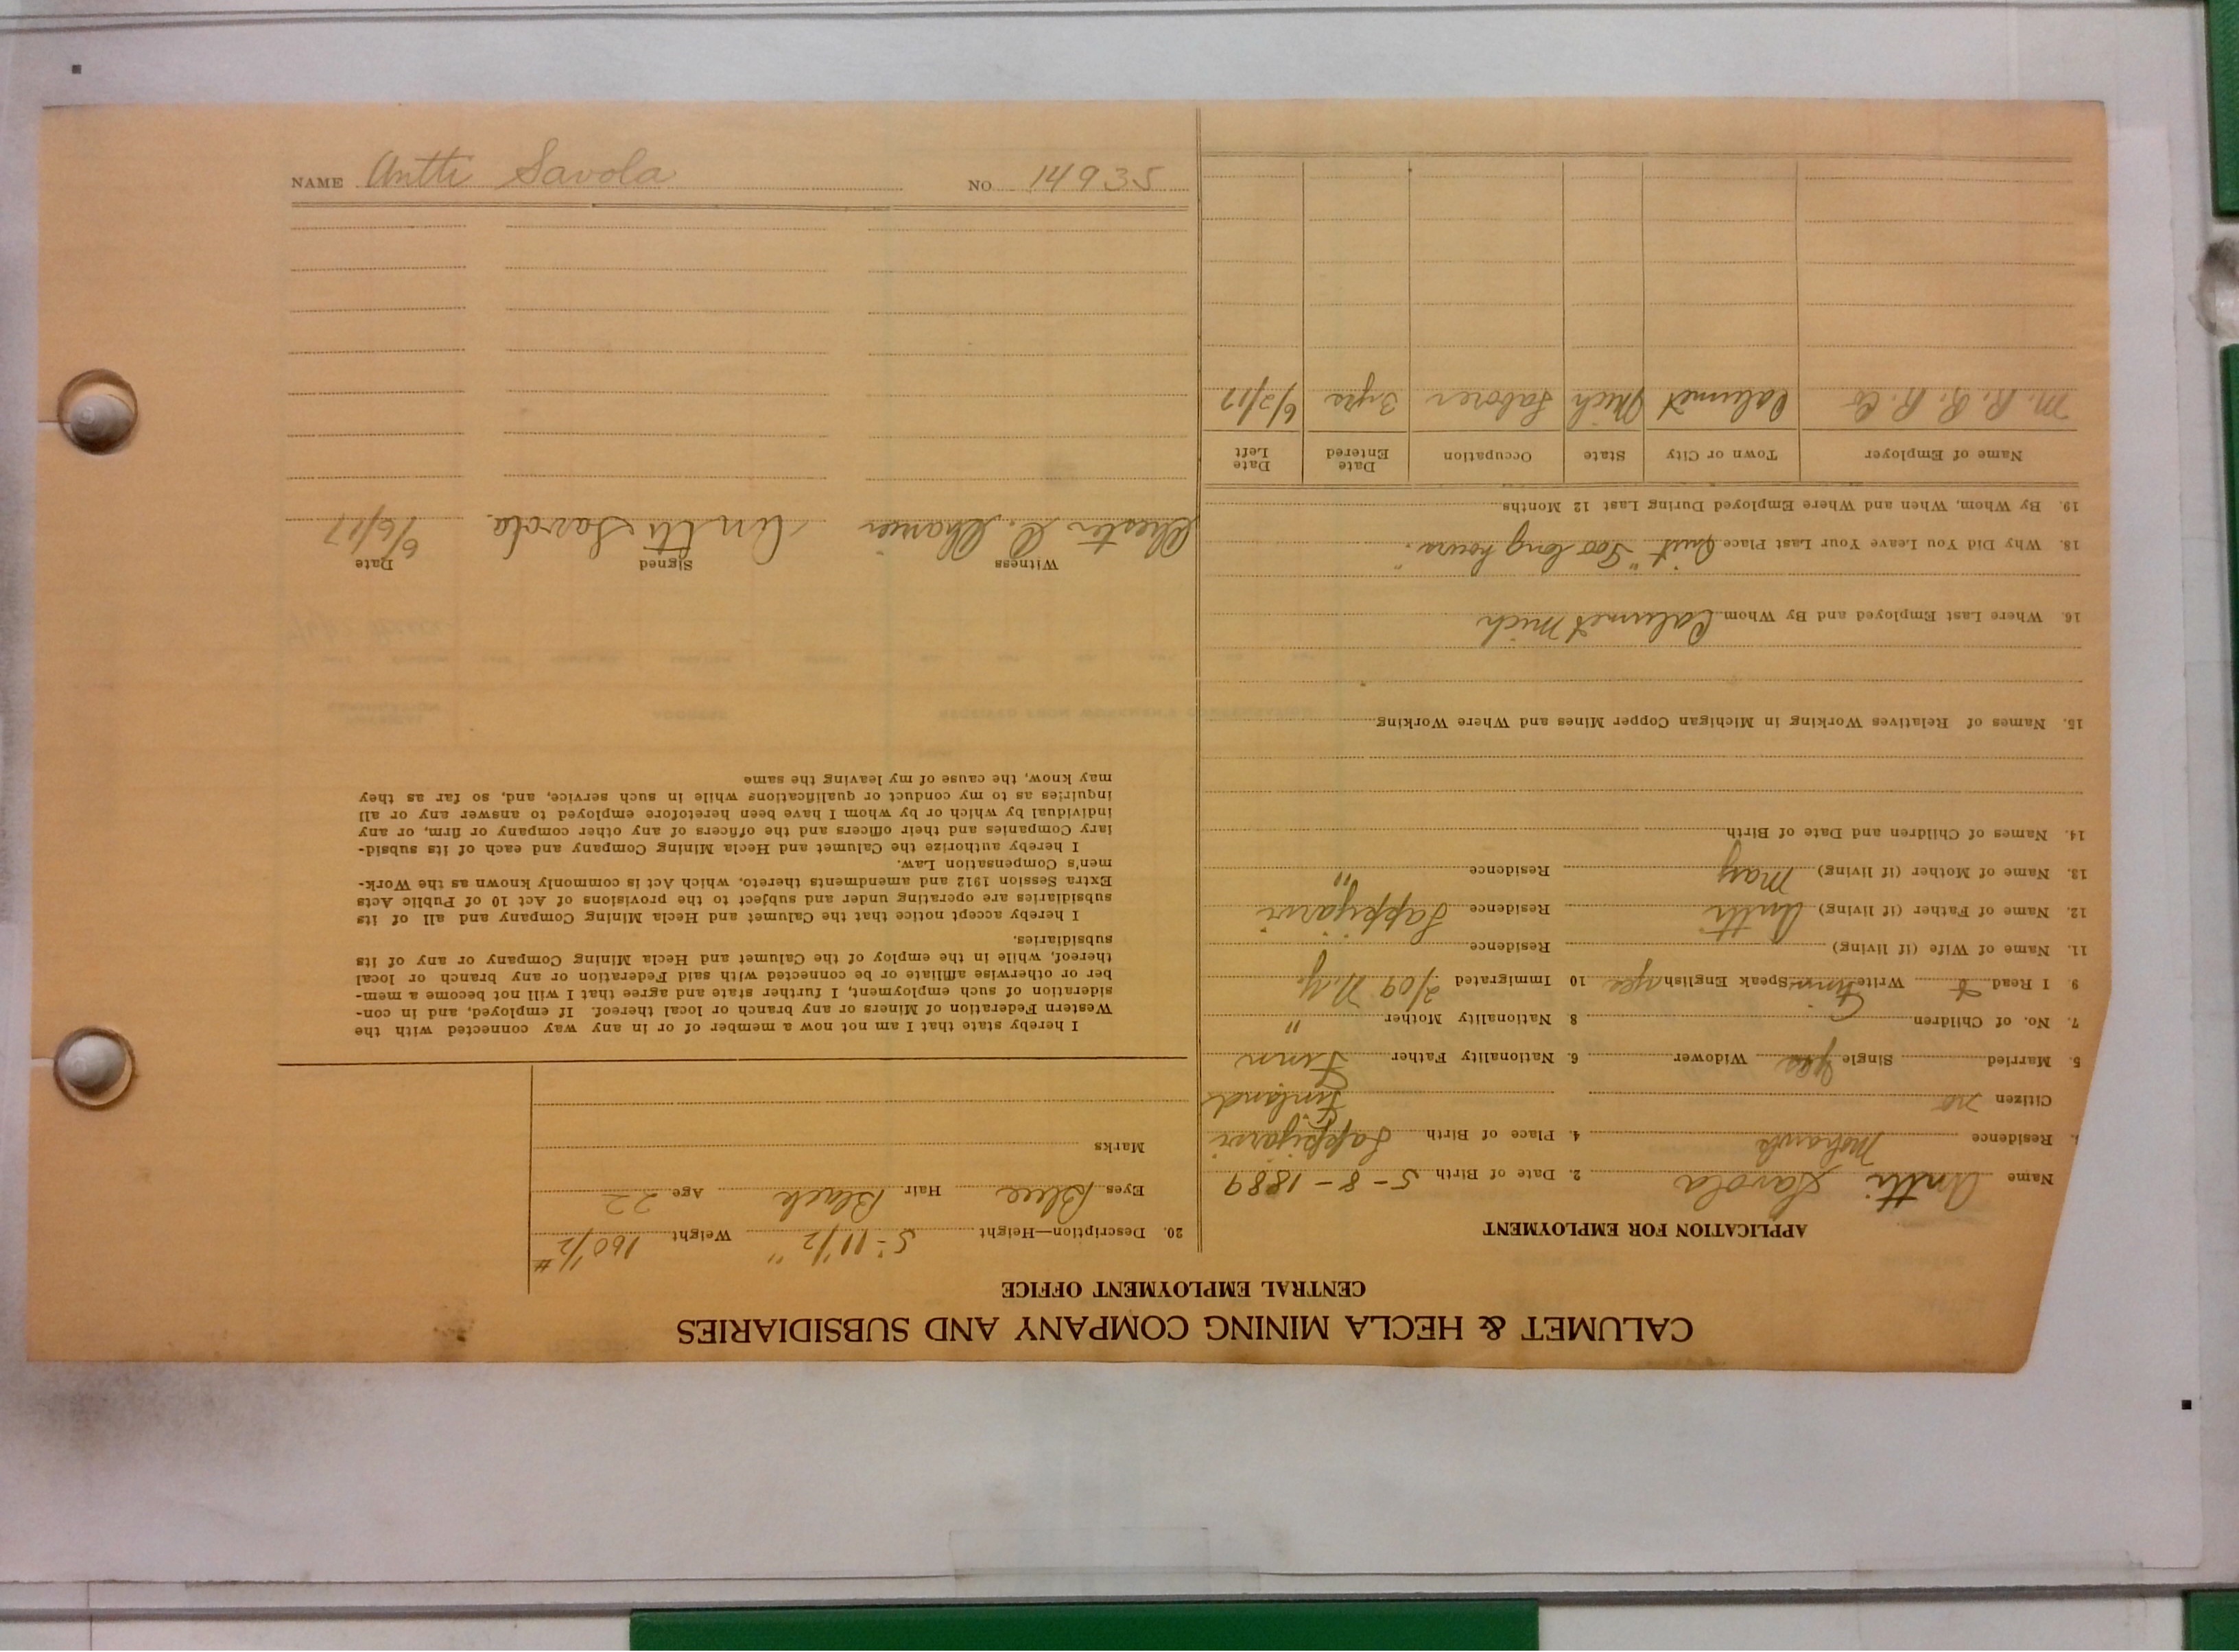 CALUMET & HECLA MINING COMPANY AND SUBSIDIARIES
CENTRAL EMPLOYMENT OFFICE
APPLICATION FOR EMPLOYMENT
Name Antti Savola 2. Date of Birth 5-8-1889
Residence Mohawk 4. Place of Birth Lappijarvi
Citizen no Finland
5. Married Single yes Widower 6. Nationality Father Finn
7. No. of Children 8. Nationality Mother "
9. I Read & Write Finn Speak English yes 10 Immigrated 2/09 N.Y.
11. Name of Wife (if living) Residence
12. Name of Father (if living) Antti Residence Lappijarvi
13. Name of Mother (if living) Mary Residence "
14. Names of Children and Date of Birth
15. Names of Relatives Working in Michigan Copper Mines and Where Working
16. Where Last Employed and By Whom Calumet Mich
18. Why Did You Leave Your Last Place Quit "Too long hours."
19. By Whom, When and Where Employed During Last 12 Months
Name of Employer Town or City State Occupation Date Entered Date Left
M. R. R. R. Co Calumet Mich Laborer 3 yrs 6/2/17
20. Description—Height 5-11 1/2" Weight 160 1/2 #
Eyes Blue Hair Black Age 22
Marks
I hereby state that I am not now a member of or in any way connected with the
Western Federation of Miners or any branch or local thereof. If employed, and in con-
sideration of such employment, I further state and agree that I will not become a mem-
ber or otherwise affiliate or be connected with said Federation or any branch or local
thereof, while in the employ of the Calumet and Hecla Mining Company or any of its
subsidiaries.
I hereby accept notice that the Calumet and Hecla Mining Company and all of its
subsidiaries are operating under and subject to the provisions of Act 10 of Public Acts
Extra Session 1912 and amendments thereto, which Act is commonly known as the Work-
men's Compensation Law.
I hereby authorize the Calumet and Hecla Mining Company and each of its subsid-
iary Companies and their officers and the officers of any other company or firm, or any
individual by which or by whom I have been heretofore employed to answer any or all
inquiries as to my conduct or qualifications while in such service, and, so far as they
may know, the cause of my leaving the same
Witness Signed Date
Chester C. Antti Savola 6/6/17
NAME Antti Savola NO 14935